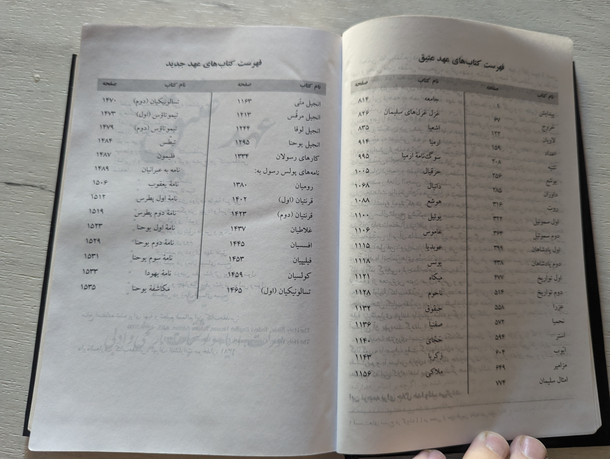 فهرست کتاب‌های عهد عتیق
نام کتاب صفحه
پیدایش ۱
خروج ۶۷
لاویان
اعداد ۱۵۹
تثنیه
یوشع ۲۵۶
داوران ۲۸۵
روت ۳۱۶
اول سموئیل ۳۲۲
دوم سموئیل
اول پادشاهان ۳۹۹
دوم پادشاهان ۴۳۸
اول تواریخ ۴۷۷
دوم تواریخ ۵۱۴
عزرا ۵۵۸
نحمیا ۵۷۲
استر ۵۹۴
ایوب ۶۰۴
مزامیر ۶۴۹
امثال سلیمان ۷۷۴
نام کتاب صفحه
جامعه ۸۱۴
غزل غزل‌های سلیمان ۸۲۶
اشعیا ۸۳۵
ارمیا ۹۱۴
سوگ‌نامهٔ ارمیا ۹۹۵
حزقیال ۱۰۰۵
دانیال ۱۰۶۸
هوشع ۱۰۸۸
یوئیل ۱۱۰۰
عاموس ۱۱۰۶
عوبدیا ۱۱۱۵
یونس ۱۱۱۸
میکاه ۱۱۲۱
ناحوم ۱۱۲۸
حبقوق ۱۱۳۲
صفنیا ۱۱۳۶
حجای ۱۱۴۰
زکریا ۱۱۴۳
ملاکی ۱۱۵۶
فهرست کتاب‌های عهد جدید
نام کتاب صفحه
انجیل متّی ۱۱۶۳
انجیل مرقُس ۱۲۱۳
انجیل لوقا ۱۲۴۴
انجیل یوحنا ۱۲۹۵
کارهای رسولان ۱۳۳۴
نامه‌های پولس رسول به:
رومیان ۱۳۸۰
قرنتیان (اول) ۱۴۰۲
قرنتیان (دوم) ۱۴۲۳
غلاطیان ۱۴۳۷
افسسیان ۱۴۴۵
فیلیپیان ۱۴۵۳
کولسیان ۱۴۵۹
تسالونیکیان (اول) ۱۴۶۵
نام کتاب صفحه
تسالونیکیان (دوم) ۱۴۷۰
تیموتاؤس (اول) ۱۴۷۳
تیموتاؤس (دوم) ۱۴۷۹
تیطس ۱۴۸۴
فلیمون ۱۴۸۷
نامه به عبرانیان ۱۴۸۹
نامهٔ یعقوب ۱۵۰۶
نامهٔ اول پطرس ۱۵۱۲
نامهٔ دوم پطرس ۱۵۱۹
نامهٔ اول یوحنا ۱۵۲۳
نامهٔ دوم یوحنا ۱۵۲۹
نامهٔ سوم یوحنا ۱۵۳۱
نامهٔ یهودا ۱۵۳۳
مکاشفهٔ یوحنا ۱۵۳۵